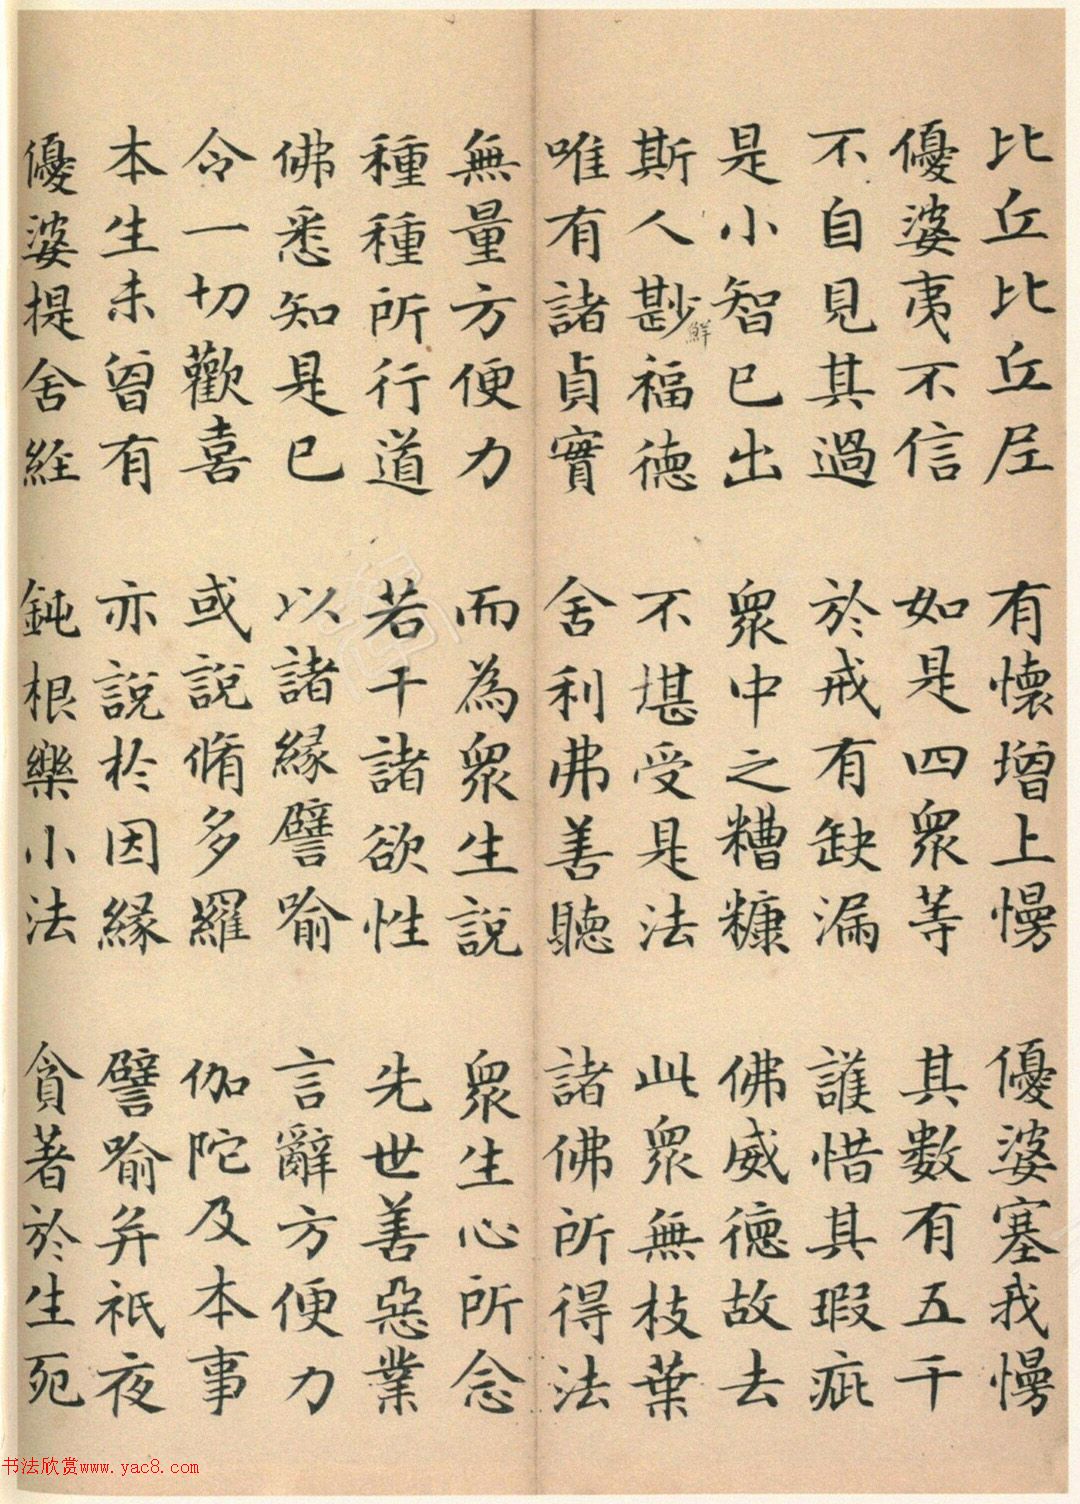 比丘比丘尼 有懷增上慢 優婆塞我慢
優婆夷不信 如是四眾等 其數有五千
不自見其過 於戒有缺漏 護惜其瑕疵
是小智已出 眾中之糟糠 佛威德故去
斯人尠福德 不堪受是法 此眾無枝葉
鮮
唯有諸貞實 舍利弗善聽 諸佛所得法
無量方便力 而為眾生說 眾生心所念
種種所行道 若干諸欲性 先世善惡業
佛悉知是已 以諸緣譬喻 言辭方便力
令一切歡喜 或說脩多羅 伽陀及本事
本生未曾有 亦說於因緣 譬喻并祇夜
優婆提舍經 鈍根樂小法 貪著於生死
书法欣赏www.yac8.com